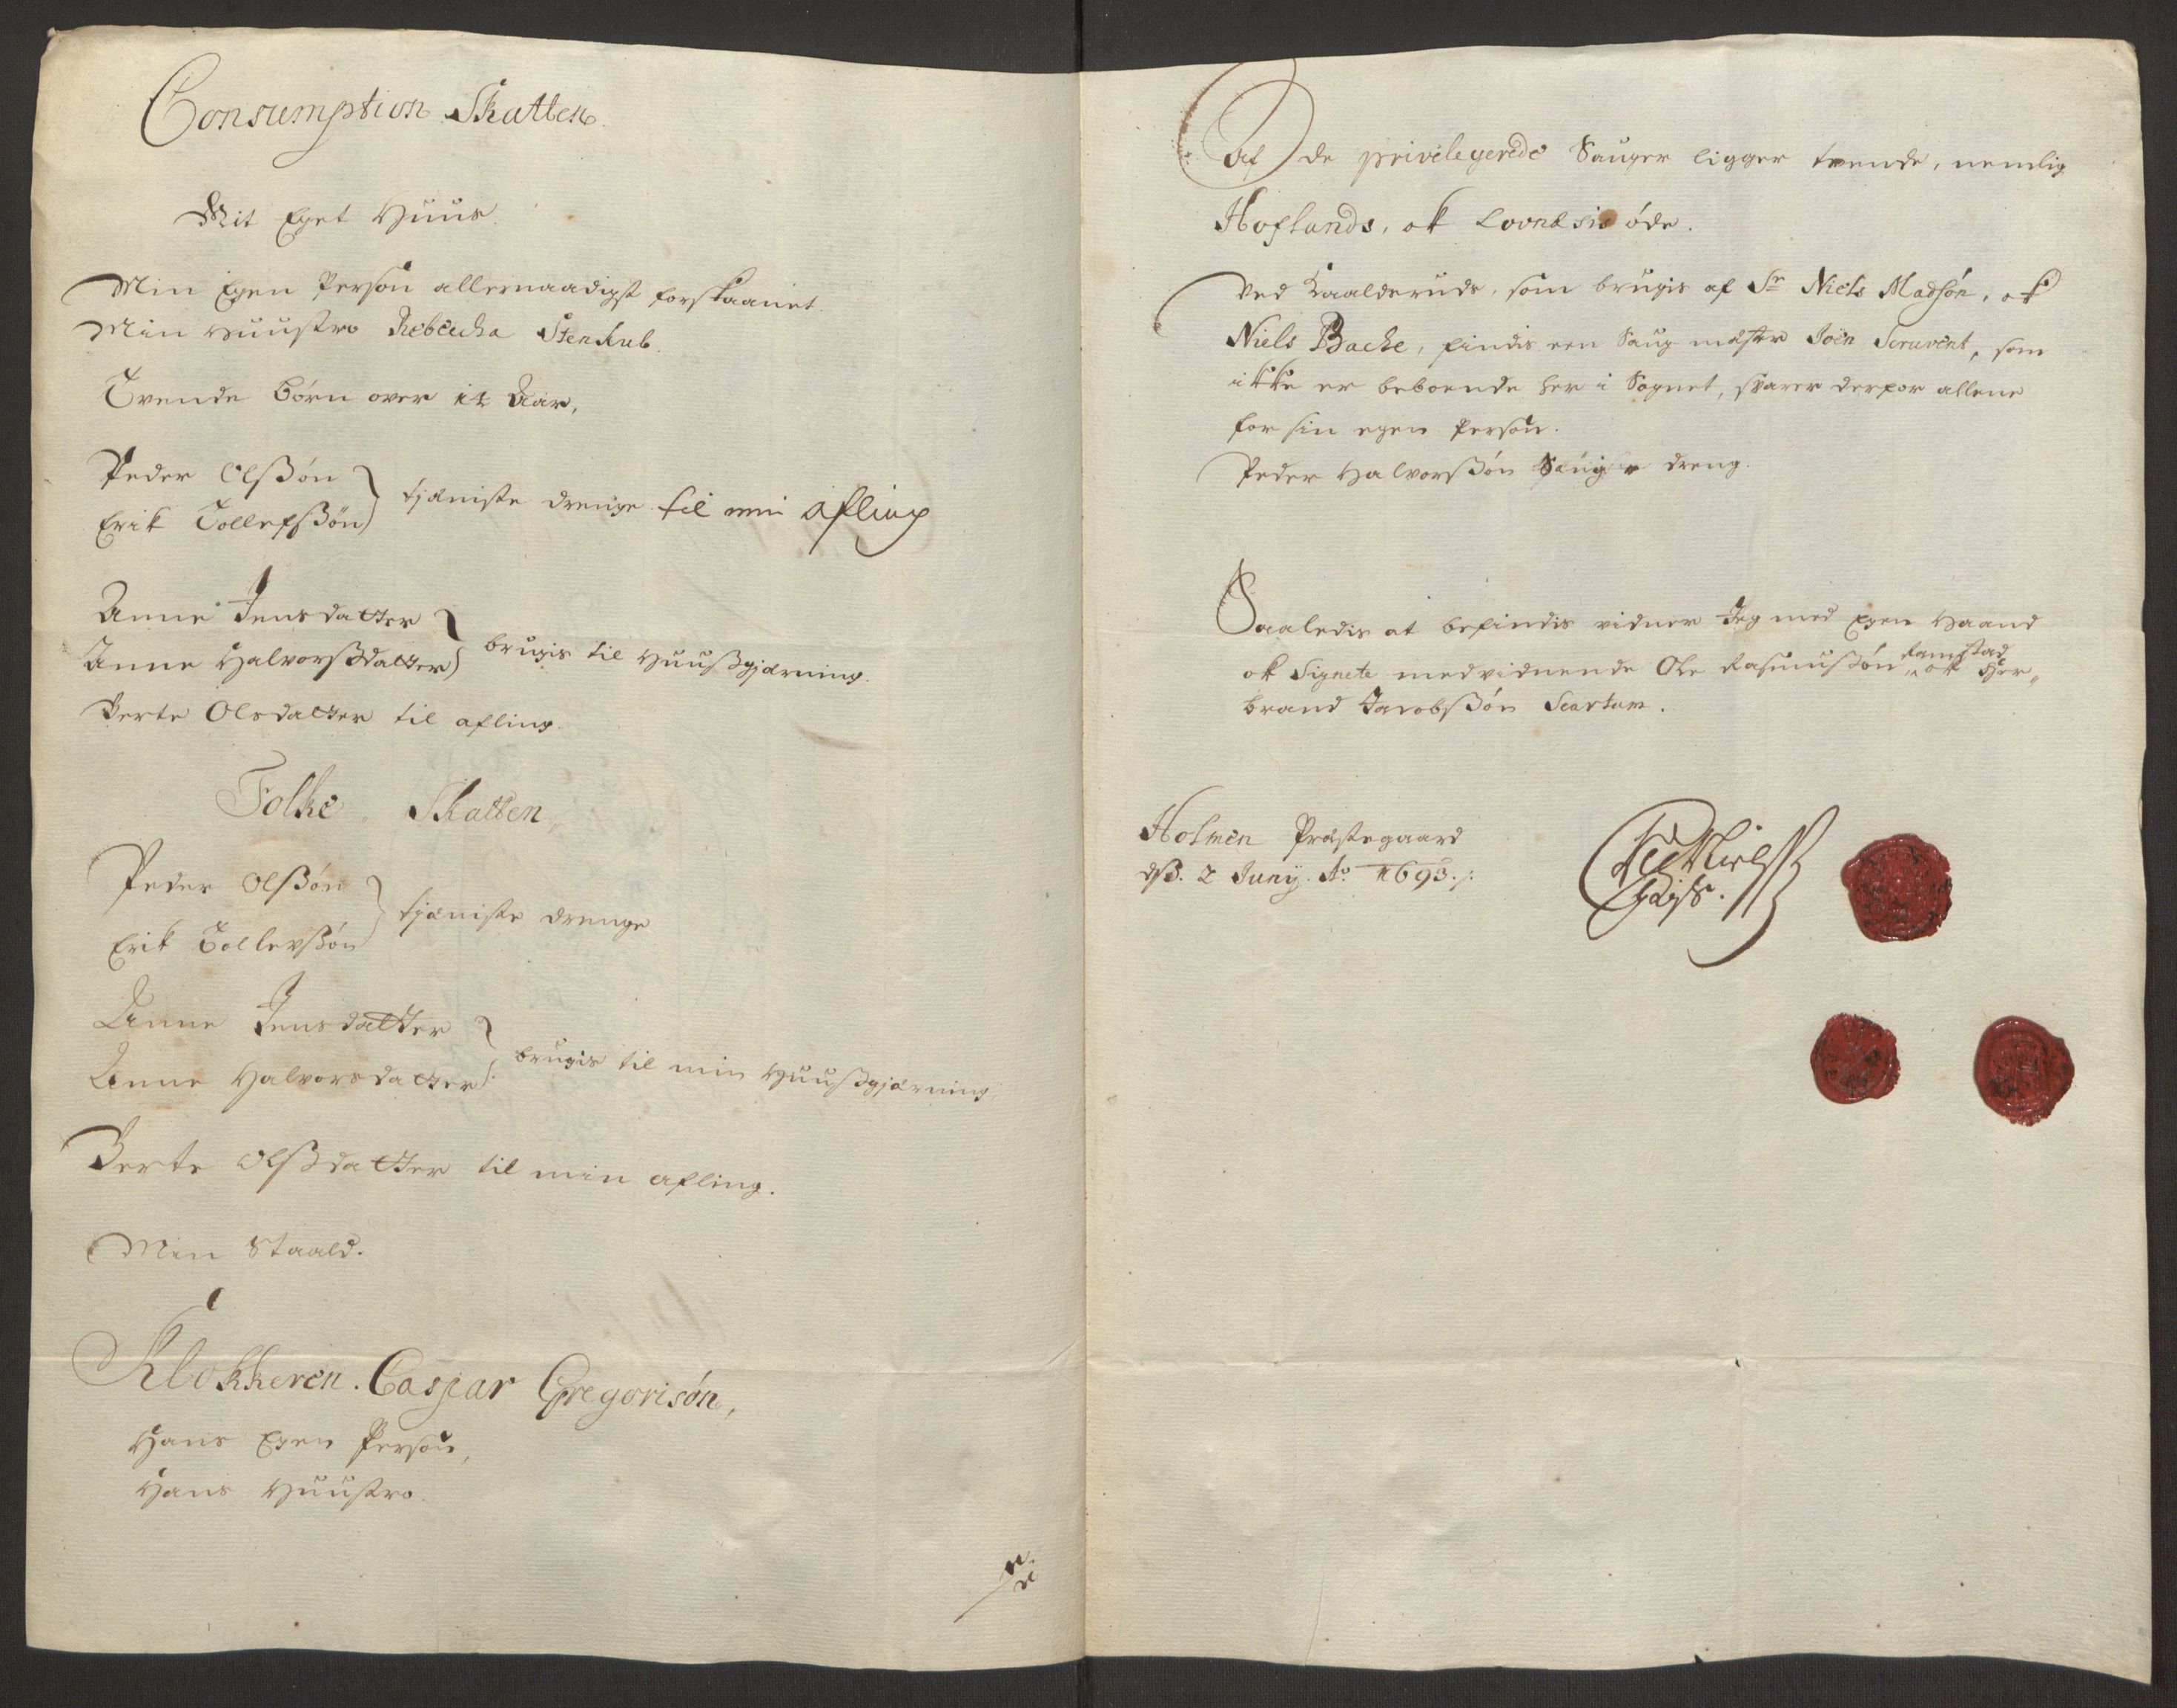 Consumption Skatten
Mit Eget Huus.
Min Egen Person allernaadigst forskaanet.
Min Huustro Rebecha Stenkub.
Tvende Børn over 12 Aar,
Peder Olsßøn
Erik Tollefsßøn } tjæniste drenge til min afling
Anne Jensdatter
Anne Halvorßdatter } brugis til Huusßgjærning.
Berte Olsdatter til afling.
Folke Skatten,
Peder Olßøn
Erik Tollevßøn } tjæniste drenge
Anne Jensdatter
Anne Halvorsdatter } brugis til min Huusßgjærning,
Berte Olßdatter til min afling.
Min Staald.
Klokkeren. Caspar Gregorisøn,
Hans Egen Person,
Hans Huustro.
Af de privilegerede Sauger ligger tvende, nemlig
Hoflands, ok Lovnesis øde.
Ved Haalderuds, som brugis af Sr Niels Madsøn, ok
Niels Bache, findis een Saug mester Joen Scruvent, som
ikke er beboende her i Sognet, svarer derfor allene
for sin egen Person.
Peder Halvorßøn Sauge dreng.
Saaledis at befindis vidner Jeg med Egen Haand
ok Signete medvidnende Ole Rasmusßøn Ramstad ok Her-
brand Jacobsßøn Scartum.
Holmen Præstegaard
dß. 2 Junij. Ao 1693.